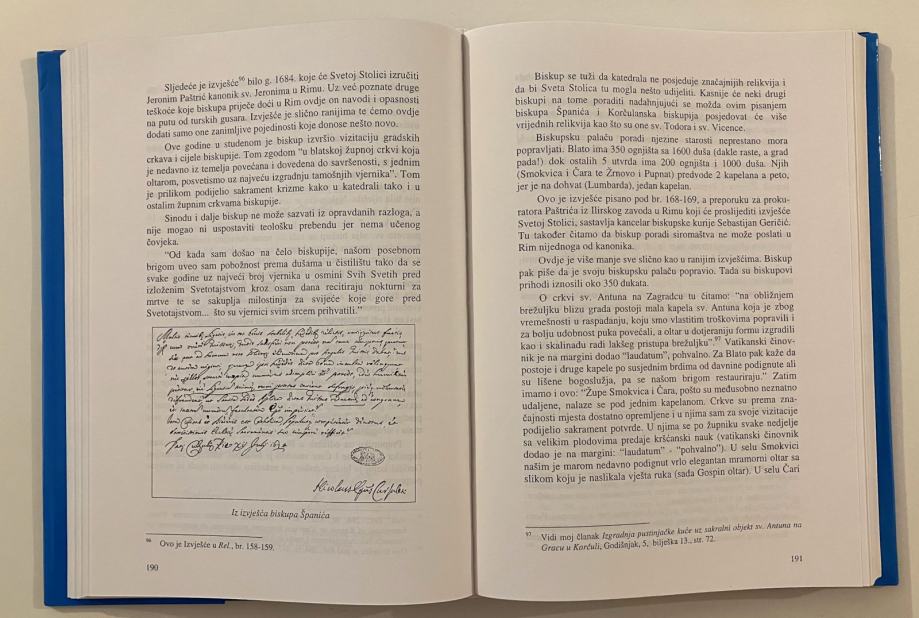 Sljedeće je izvješće⁹⁶ bilo g. 1684. koje će Svetoj Stolici izručiti
Jeronim Paštrić kanonik sv. Jeronima u Rimu. Uz već poznate druge
teškoće koje biskupa priječe doći u Rim ovdje on navodi i opasnosti
na putu od turskih gusara. Izvješće je slično ranijima te ćemo ovdje
dodati samo one zanimljive pojedinosti koje donose nešto novo.
Ove godine u studenom je biskup izvršio vizitaciju gradskih
crkava i cijele biskupije. Tom zgodom “u blatskoj župnoj crkvi koja
je nedavno iz temelja povećana i dovedena do savršenosti, s jednim
oltarom, posvetismo uz najveću izgradnju tamošnjih vjernika”. Tom
je prilikom podijelio sakrament krizme kako u katedrali tako i u
ostalim župnim crkvama biskupije.
Sinodu i dalje biskup ne može sazvati iz opravdanih razloga, a
nije mogao ni uspostaviti teološku prebendu jer nema učenog
čovjeka.
“Od kada sam došao na čelo biskupije, našom posebnom
brigom uveo sam pobožnost prema dušama u čistilištu tako da se
svake godine uz najveći broj vjernika u osmini Svih Svetih pred
izloženim Svetotajstvom kroz osam dana recitiraju nokturni za
mrtve te se sakuplja milostinja za svijeće koje gore pred
Svetotajstvom... što su vjernici svim srcem prihvatili.”
Iz izvješća biskupa Španića
⁹⁶ Ovo je Izvješće u Rel., br. 158-159.
190
Biskup se tuži da katedrala ne posjeduje značajnijih relikvija i
da bi Sveta Stolica tu mogla nešto udijeliti. Kasnije će neki drugi
biskupi na tome poraditi nadahnjujući se možda ovim pisanjem
biskupa Španića i Korčulanska biskupija posjedovat će više
vrijednih relikvija kao što su one sv. Todora i sv. Vicence.
Biskupsku palaču poradi njezine starosti neprestano mora
popravljati. Blato ima 350 ognjišta sa 1600 duša (dakle raste, a grad
pada!) dok ostalih 5 utvrda ima 200 ognjišta i 1000 duša. Njih
(Smokvica i Čara te Žrnovo i Pupnat) predvode 2 kapelana a peto,
jer je na dohvat (Lumbarda), jedan kapelan.
Ovo je izvješće pisano pod br. 168-169, a preporuku za proku-
ratora Paštrića iz Ilirskog zavoda u Rimu koji će proslijediti izvješće
Svetoj Stolici, sastavlja kancelar biskupske kurije Sebastijan Geričić.
Tu također čitamo da biskup poradi siromaštva ne može poslati u
Rim nijednoga od kanonika.
Ovdje je više manje sve slično kao u ranijim izvješćima. Biskup
pak piše da je svoju biskupsku palaču popravio. Tada su biskupovi
prihodi iznosili oko 350 dukata.
O crkvi sv. Antuna na Zagradcu tu čitamo: “na obližnjem
brežuljku blizu grada postoji mala kapela sv. Antuna koja je zbog
vremešnosti u raspadanju, koju smo vlastitim troškovima popravili i
za bolju udobnost puka povećali, a oltar u dotjeraniju formu izgradili
kao i skalinadu radi lakšeg pristupa brežuljku”.⁹⁷ Vatikanski činov-
nik je na margini dodao “laudatum”, pohvalno. Za Blato pak kaže da
postoje i druge kapele po susjednim brdima od davnine podignute ali
su lišene bogoslužja, pa se našom brigom restauriraju.” Zatim
imamo i ovo: “Župe Smokvica i Čara, pošto su međusobno neznatno
udaljene, nalaze se pod jednim kapelanom. Crkve su prema zna-
čajnosti mjesta dostatno opremljene i u njima sam za svoje vizitacije
podijelio sakrament potvrde. U njima se po župniku svake nedjelje
sa velikim plodovima predaje kršćanski nauk (vatikanski činovnik
dodao je na margini: “laudatum” - “pohvalno”). U selu Smokvici
našim je marom nedavno podignut vrlo elegantan mramorni oltar sa
slikom koju je naslikala vješta ruka (sada Gospin oltar). U selu Čari
⁹⁷ Vidi moj članak Izgradnja pustinjačke kuće uz sakralni objekt sv. Antuna na
Gracu u Korčuli, Godišnjak, 5, bilješka 13., str. 72.
191